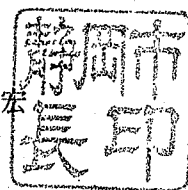 静岡市
長印
宏